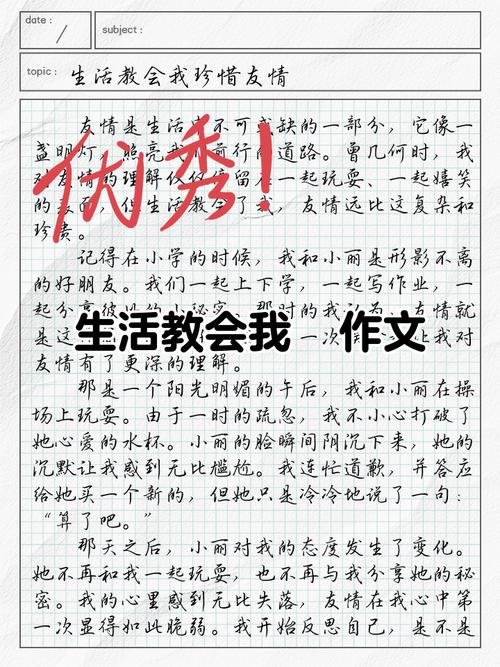 date :
subject :
topic : 生活教会我珍惜友情
友情是生活中不可或缺的一部分，它像一
盏明灯，照亮我们前行的道路。曾几何时，我
对友情的理解仅仅停留在一起玩耍、一起嬉笑
的表面，但生活教会了我，友情远比这复杂和
珍贵。
优秀！
记得在小学的时候，我和小丽是形影不离
的好朋友。我们一起上下学，一起写作业，一
起分享彼此的小秘密。那时的我认为，友情就
是这
一次
让我对
生活教会我 作文
友情有了更深的理解。
那是一个阳光明媚的午后，我和小丽在操
场上玩耍。由于一时的疏忽，我不小心打破了
她心爱的水杯。小丽的脸瞬间阴沉下来，她的
沉默让我感到无比尴尬。我连忙道歉，并答应
给她买一个新的，但她只是冷冷地说了一句：
“算了吧。”
那天之后，小丽对我的态度发生了变化。
她不再和我一起玩耍，也不再与我分享她的秘
密。我的心里感到无比失落，友情在我心中第
一次显得如此脆弱。我开始反思自己，是不是